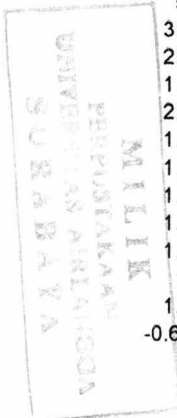 MILIK
PERPUSTAKAAN
UNIVERSITAS AIRLANGGA
SURABAYA
3
2
1
2
1
1
1
1
1
-0.6